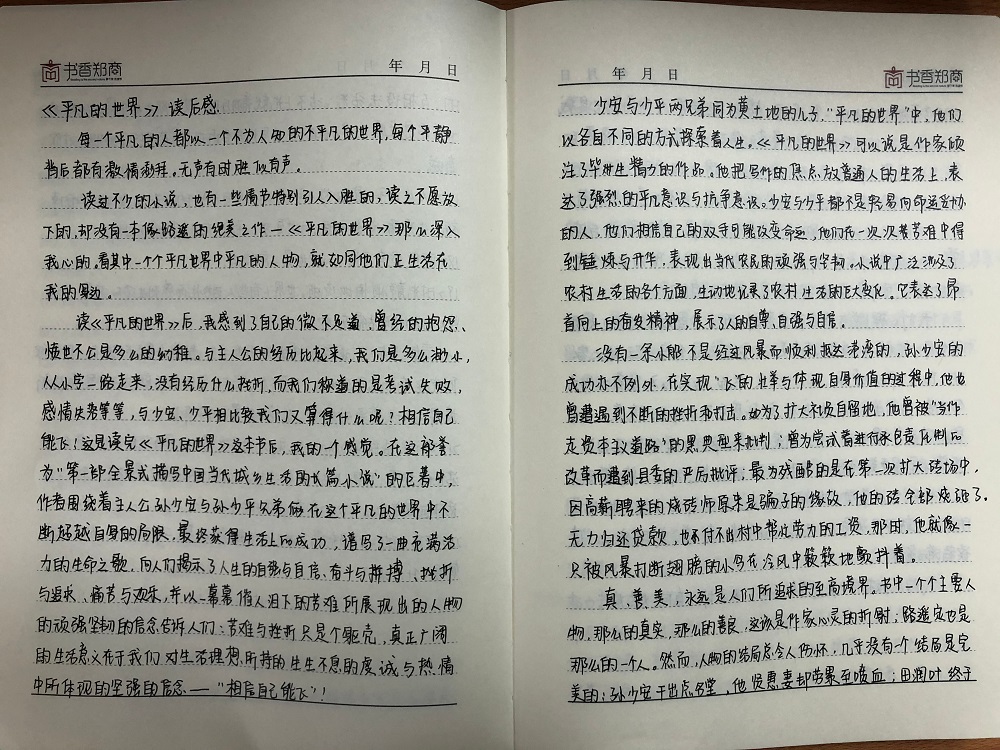 书香郑商
年 月 日
《平凡的世界》读后感
每一个平凡的人都以一个不为人知的不平凡的世界,每个平静
背后都有激情澎拜。无声有时胜似有声。
读过不少的小说,也有一些情节特别引人入胜的,读之不愿放
下的,却没有一本像路遥的绝美之作—《平凡的世界》那么深入
我心的。看其中一个个平凡世界中平凡的人物,就如同他们正生活在
我的身边。
读《平凡的世界》后,我感到了自己的微不足道,曾经的抱怨、
愤世不公是多么的幼稚。与主人公的经历比起来,我们是多么渺小,
从小学一路走来,没有经历什么挫折,而我们称道的是考试失败,
感情失势等等,与少安、少平相比较我们又算得什么呢?相信自己
能飞!这是读完《平凡的世界》这本书后,我的一个感觉。在这部誉
为“第一部全景式描写中国当代城乡生活的长篇小说”的巨著中,
作者围绕着主人公孙少安与孙少平兄弟俩在这个平凡的世界中不
断超越自身的局限,最终获得生活上的成功,谱写了一曲充满活
力的生命之歌,向人们揭示了人生的自强与自信、奋斗与拼搏、挫折
与追求、痛苦与欢乐,并以一幕幕催人泪下的苦难所展现出的人物
的顽强坚韧的信念告诉人们:苦难与挫折只是个躯壳,真正广阔
的生活意义在于我们对生活理想所持的生生不息的虔诚与热情
中所体现的坚强的信念——“相信自己能飞”!
年 月 日
书香郑商
少安与少平两兄弟同为黄土地的儿子,“平凡的世界”中,他们
以各自不同的方式探索着人生。《平凡的世界》可以说是作家倾
注了毕生精力的作品。他把写作的焦点放普通人的生活上,表
达了强烈的平凡意识与抗争意识。少安与少平都不是轻易向命运妥协
的人,他们相信自己的双手可能改变命运,他们在一次次苦难中得
到锤炼与升华,表现出当代农民的顽强与坚韧。小说中广泛涉及了
农村生活的各个方面,生动地记录了农村生活的巨大变化。它表达了昂
首向上的奋发精神,展示了人的自尊、自强与自信。
没有一条小船不是经过风暴而顺利抵达港湾的,孙少安的
成功亦不例外,在实现“飞”的壮举与体现自身价值的过程中,他也
曾遭遇到不断的挫折和打击。如为了扩大社员自留地,他曾被“当作
走资本主义道路”的典型来批判;曾为尝试着进行承包责任制的
改革而遭到县委的严厉批评;最为残酷的是在第一次扩大砖场中,
因高薪聘来的烧砖师原来是骗子的缘故,他的砖全部烧砸了,
无力归还贷款,也不付不出村中帮忙劳力的工资,那时,他就像一
只被风暴打断翅膀的小鸟在冷风中簌簌地颤抖着。
真、善、美,永远是人们所追求的至高境界。书中一个个主要人
物,那么的真实,那么的善良,这该是作家心灵的折射;路遥定也是
那么的一个人。然而,人物的结局总令人伤怀,几乎没有一个结局是完
美的:孙少安干出点名堂,他贤惠妻却劳累至喷血;田润叶终于